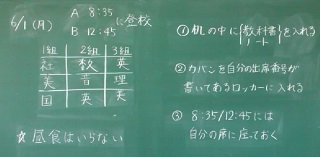 6/1(月) A 8:35
B 12:45 に登校
1組 2組 3組
社 数 英
美 音 理
国 英 美
☆ 昼食はいらない
① 机の中に{教科書 ノート}を入れる
② カバンを自分の出席番号が
書いてあるロッカーに入れる
③ 8:35/12:45には
自分の席に座っておく